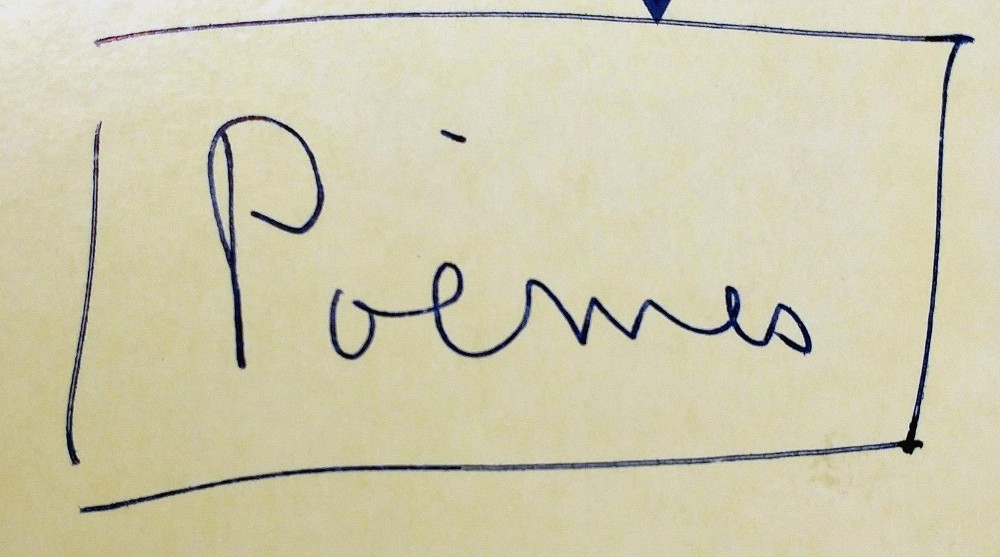 Poèmes